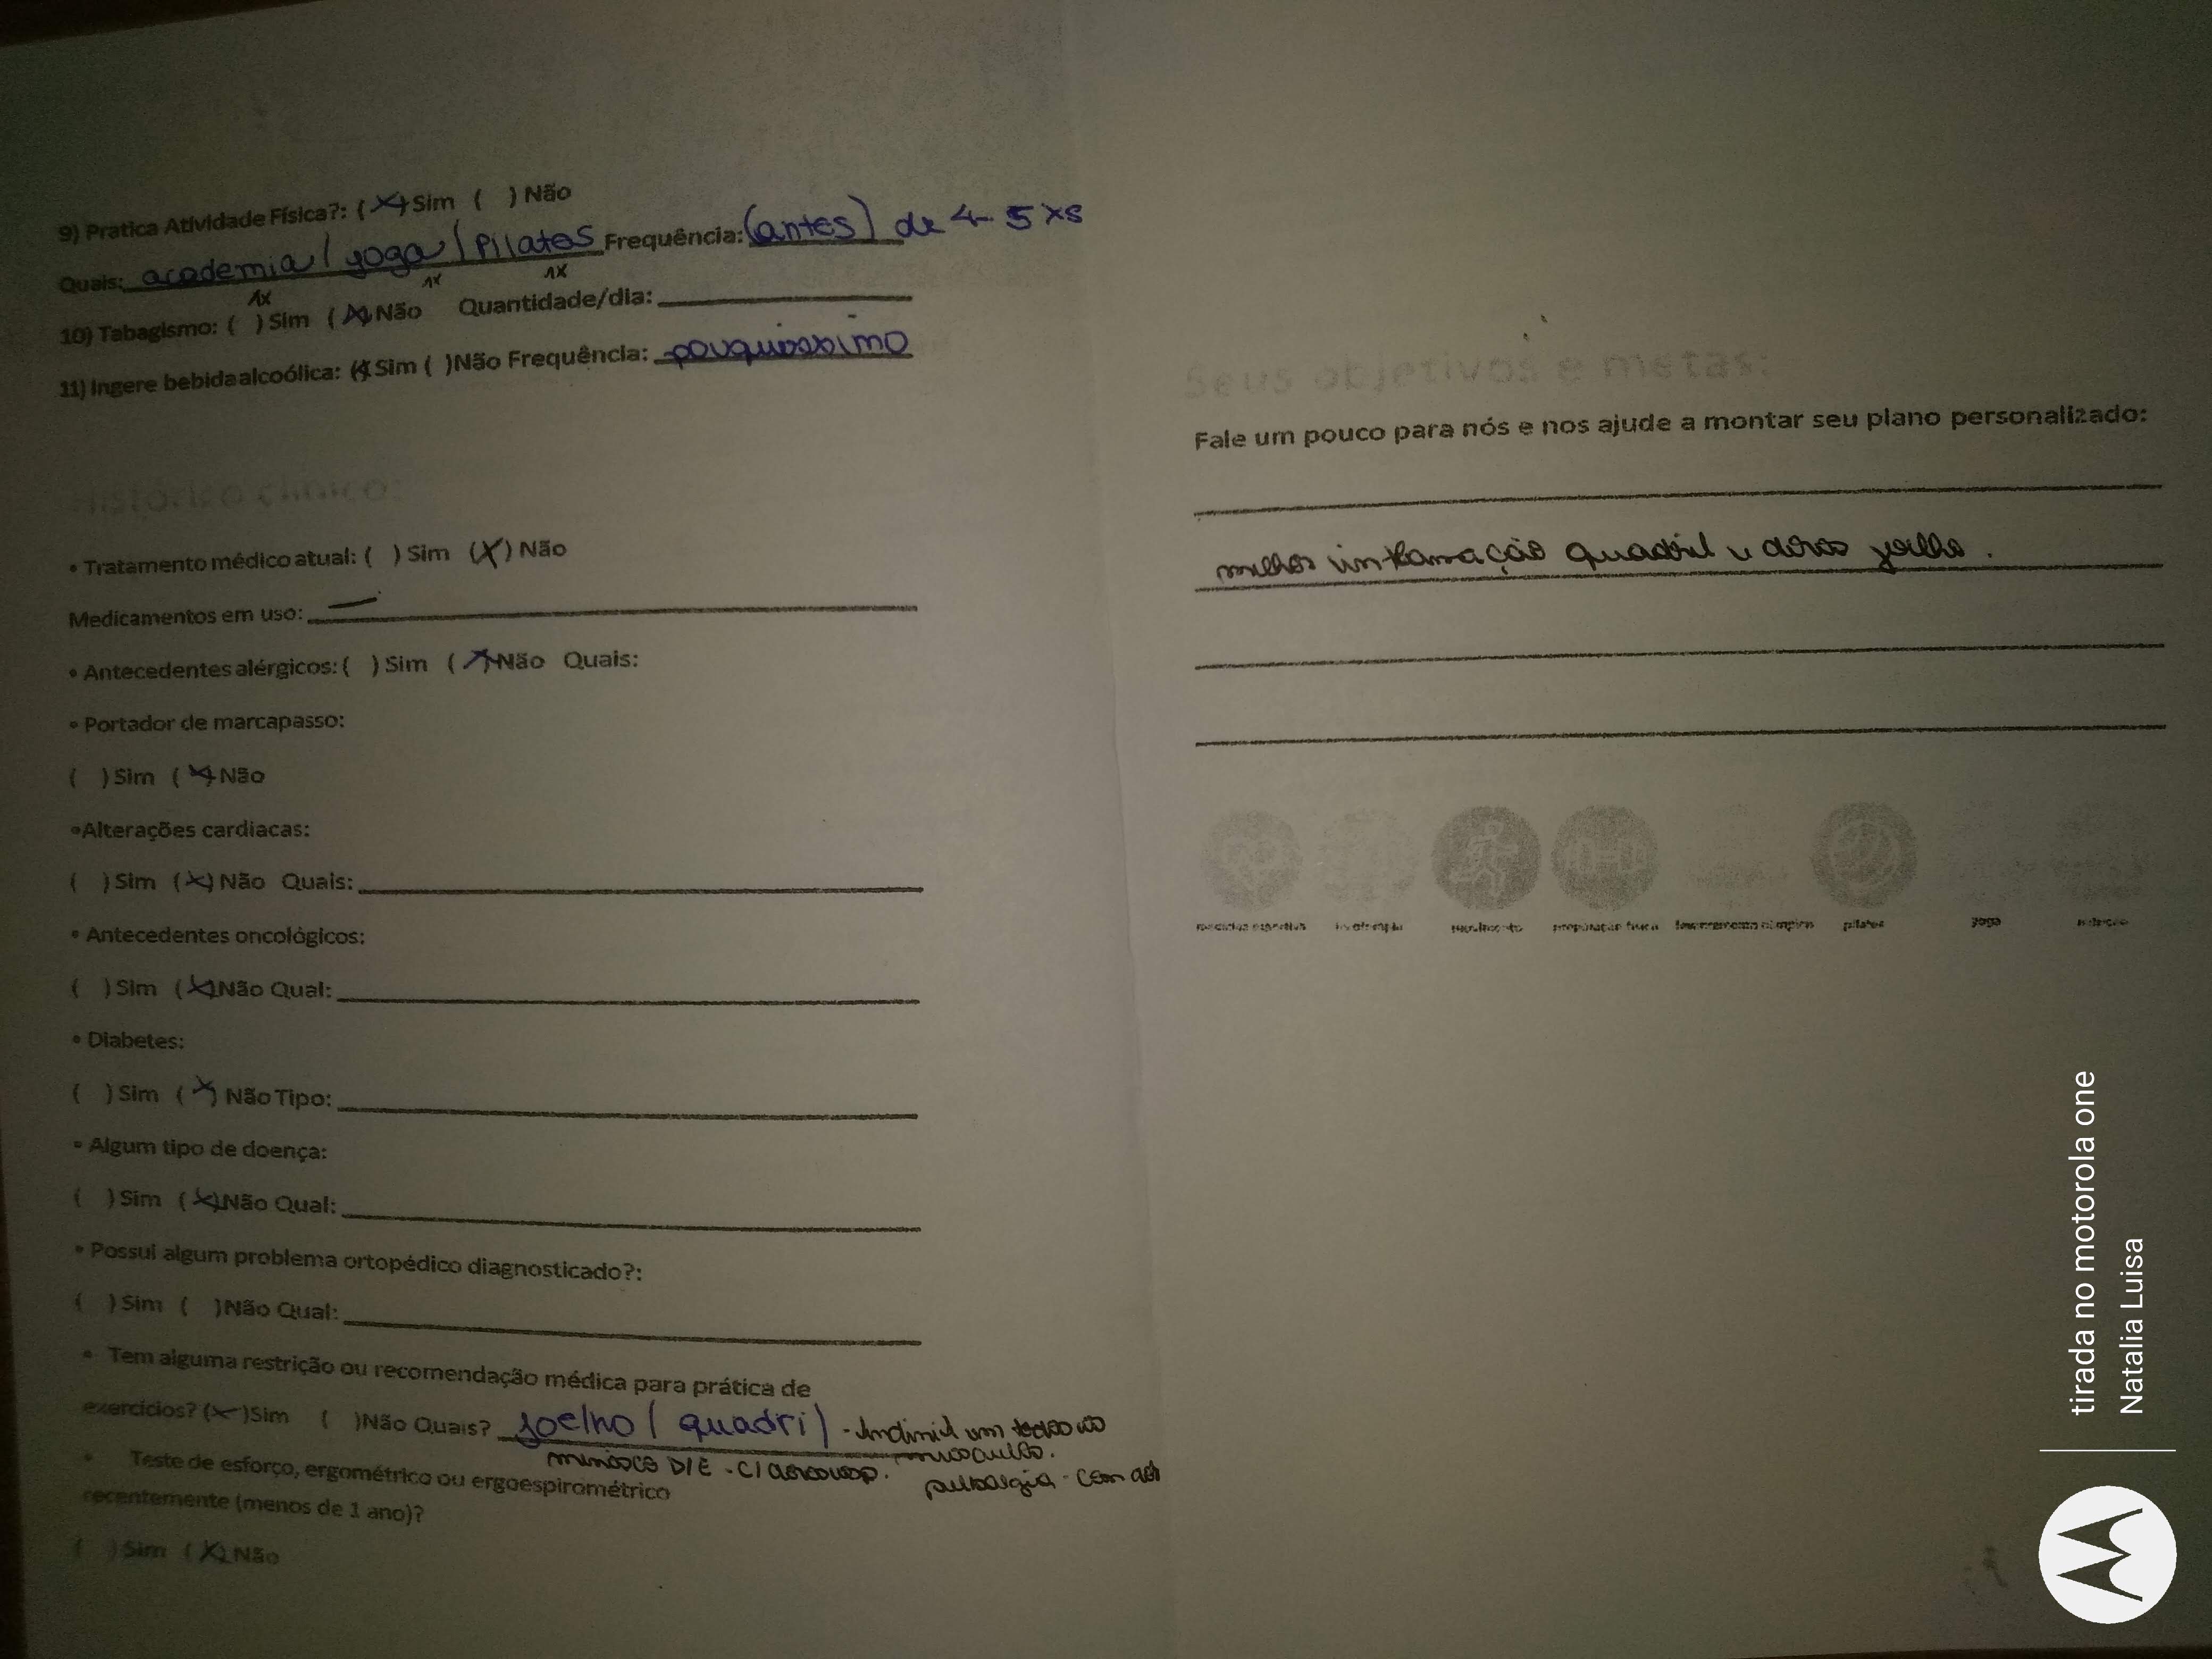 9) Pratica Atividade Física?: (X) Sim ( ) Não
Quais: academia / yoga / Pilates Frequência: (antes) de 4-5 xs
1x 1x 1x
10) Tabagismo: ( ) Sim (X) Não Quantidade/dia:
11) Ingere bebida alcoólica: (X) Sim ( ) Não Frequência: pouquissimo
• Tratamento médico atual: ( ) Sim (X) Não
Medicamentos em uso: —
• Antecedentes alérgicos: ( ) Sim (X) Não Quais:
• Portador de marcapasso:
( ) Sim (X) Não
• Alterações cardiacas:
( ) Sim (X) Não Quais:
• Antecedentes oncológicos:
( ) Sim (X) Não Qual:
• Diabetes:
( ) Sim (X) Não Tipo:
• Algum tipo de doença:
( ) Sim (X) Não Qual:
• Possui algum problema ortopédico diagnosticado?:
( ) Sim ( ) Não Qual:
• Tem alguma restrição ou recomendação médica para prática de
exercícios? (X) Sim ( ) Não Quais? Joelho (quadril) -
• Teste de esforço, ergométrico ou ergoespirométrico
recentemente (menos de 1 ano)?
( ) Sim (X) Não
Seus objetivos e metas:
Fale um pouco para nós e nos ajude a montar seu plano personalizado:
melhor inflamação quadril e dores joelho.
pilates
yoga
tirada no motorola one
Natalia Luisa